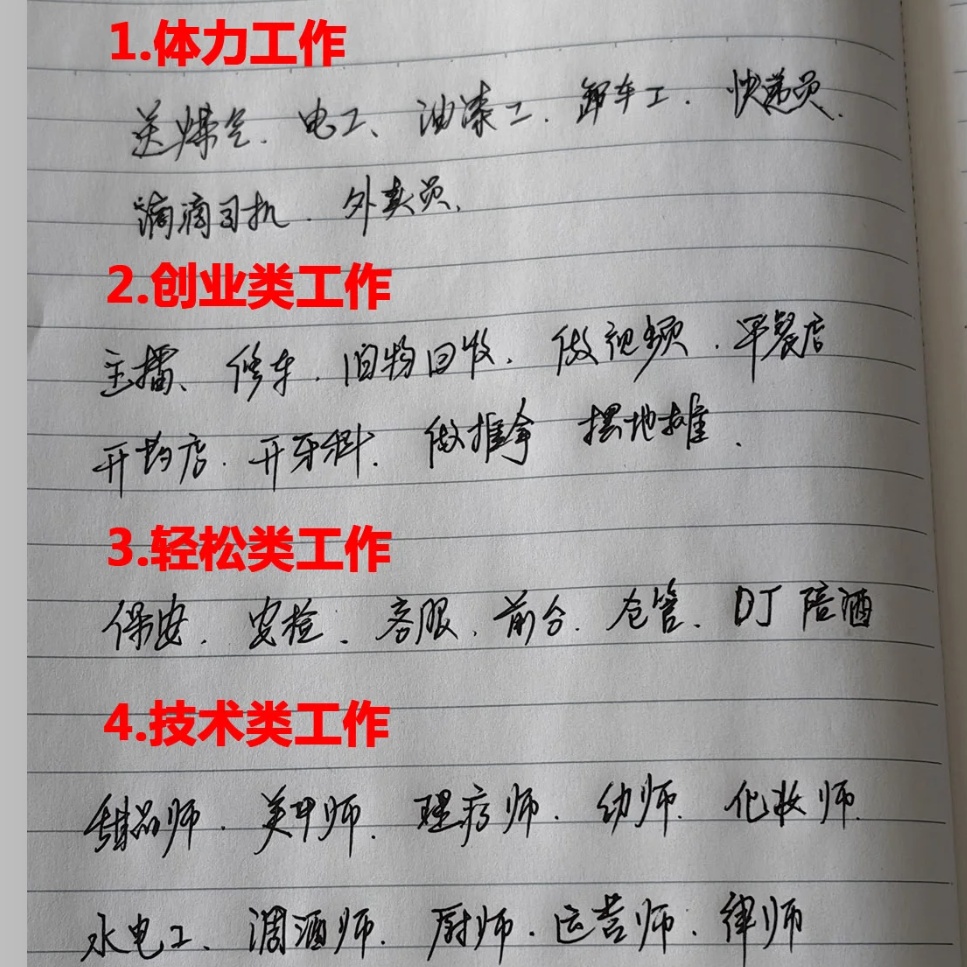 1.体力工作
送煤气、电工、油漆工、卸车工、快递员、
滴滴司机、外卖员、
2.创业类工作
主播、修车、旧物回收、做视频、早餐店
开药店、开牙科、做推拿 摆地摊、
3.轻松类工作
保安、安检、客服、前台、仓管、DJ陪酒
4.技术类工作
甜品师、美甲师、理疗师、幼师、化妆师、
水电工、调酒师、厨师、运营师、律师